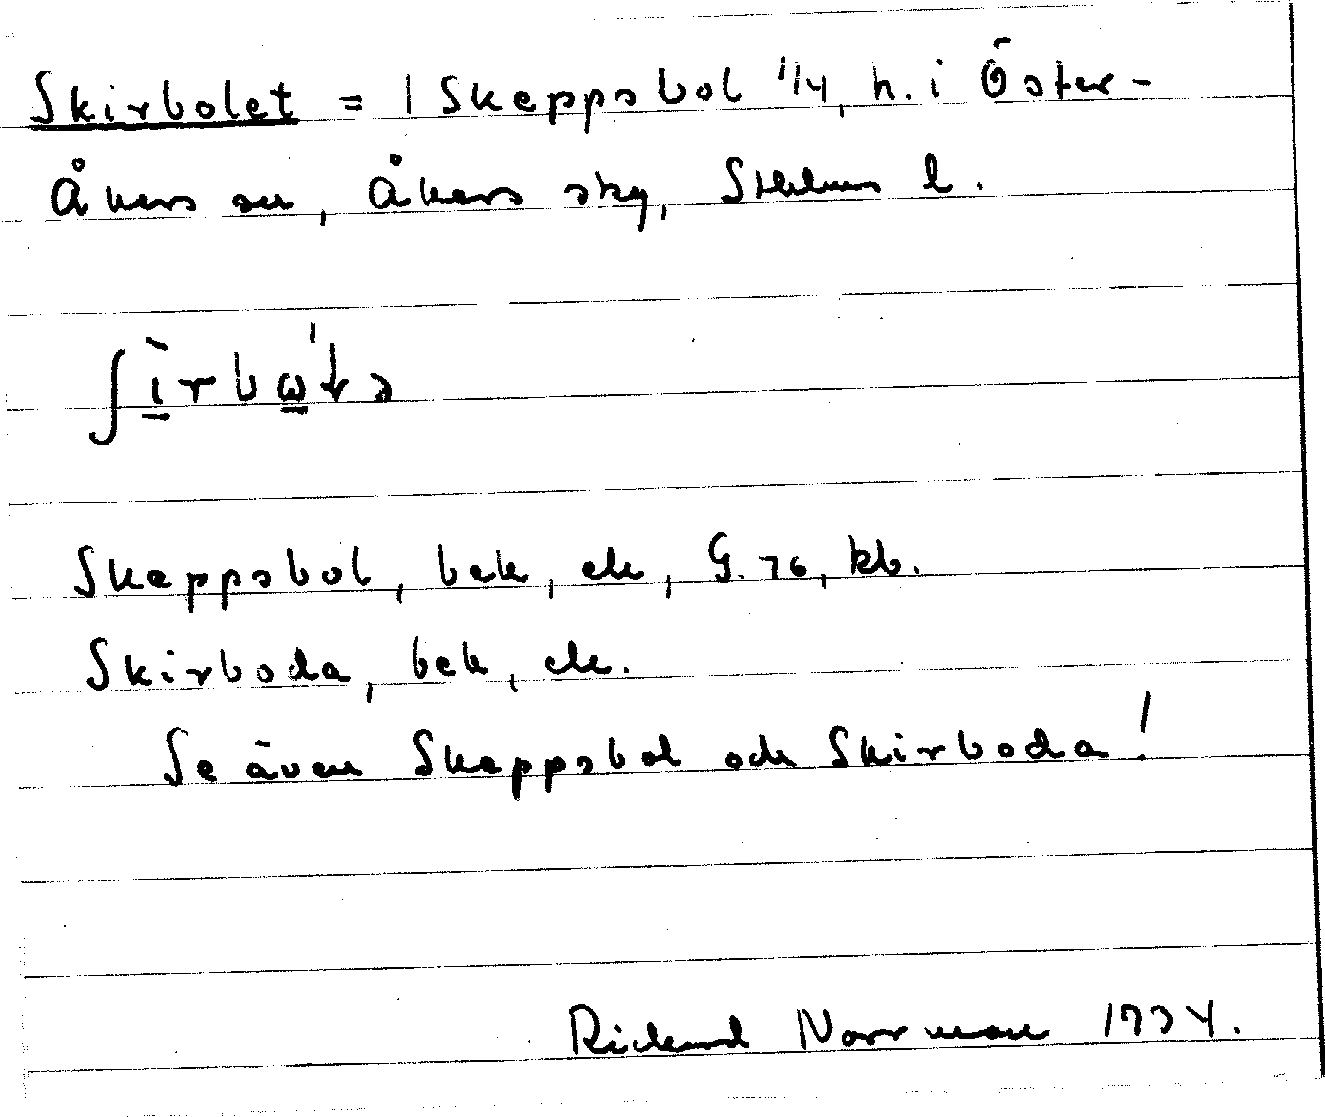 Skirbolet = 1 Skeppsbol 1/4, h. i Öster-
Åkers sn, Åkers sky, Sthlms l.
Skeppsbol, bek, ek, G. 76, kb.
Skirboda, bek, ek.
Se även Skeppsbol och Skirboda!
Rickard Norrman 1934.